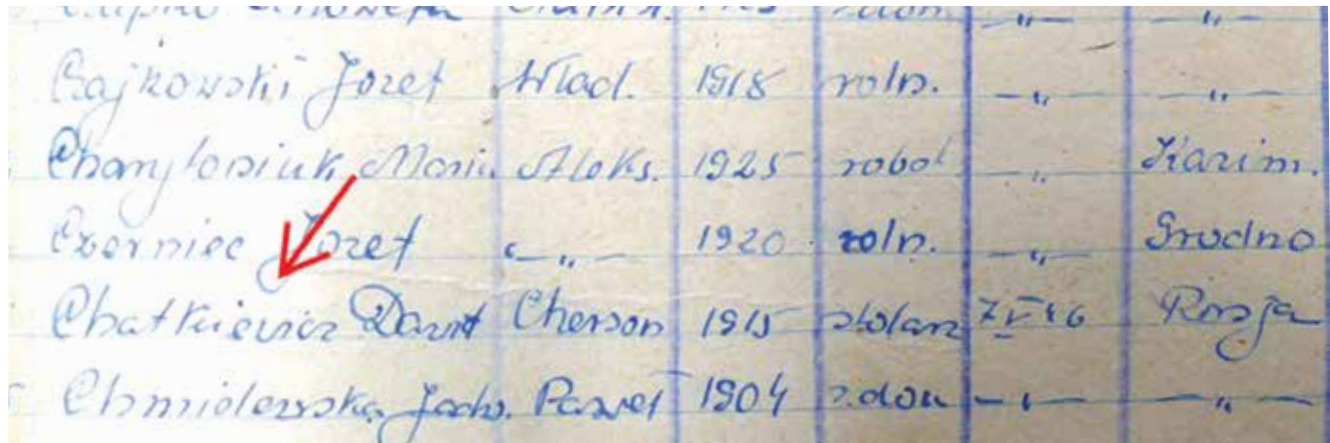 Bajkowski Jozef Wlad. 1918 roln. —„— —„—
Maria Aleks. 1925 robot —„— Kazim.
Czerniec Jozef —„— 1920 roln. —„— Grodno
Chatkiewicz Dawid Cherson 1915 stolarz 7 V 46 Rosja
Chmielewska Jadw. Paweł 1904 z.dom —„— —„—